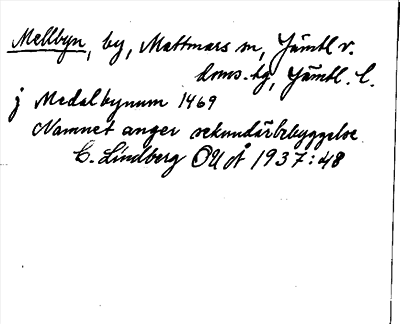 Mellbyn, by, Mattmars sn, Jämtl. v.
doms.hg, Jämtl. l.
j Medalbynum 1469
Namnet anger sekundärbebyggelse
C. Lindberg OUÅ 1937:48